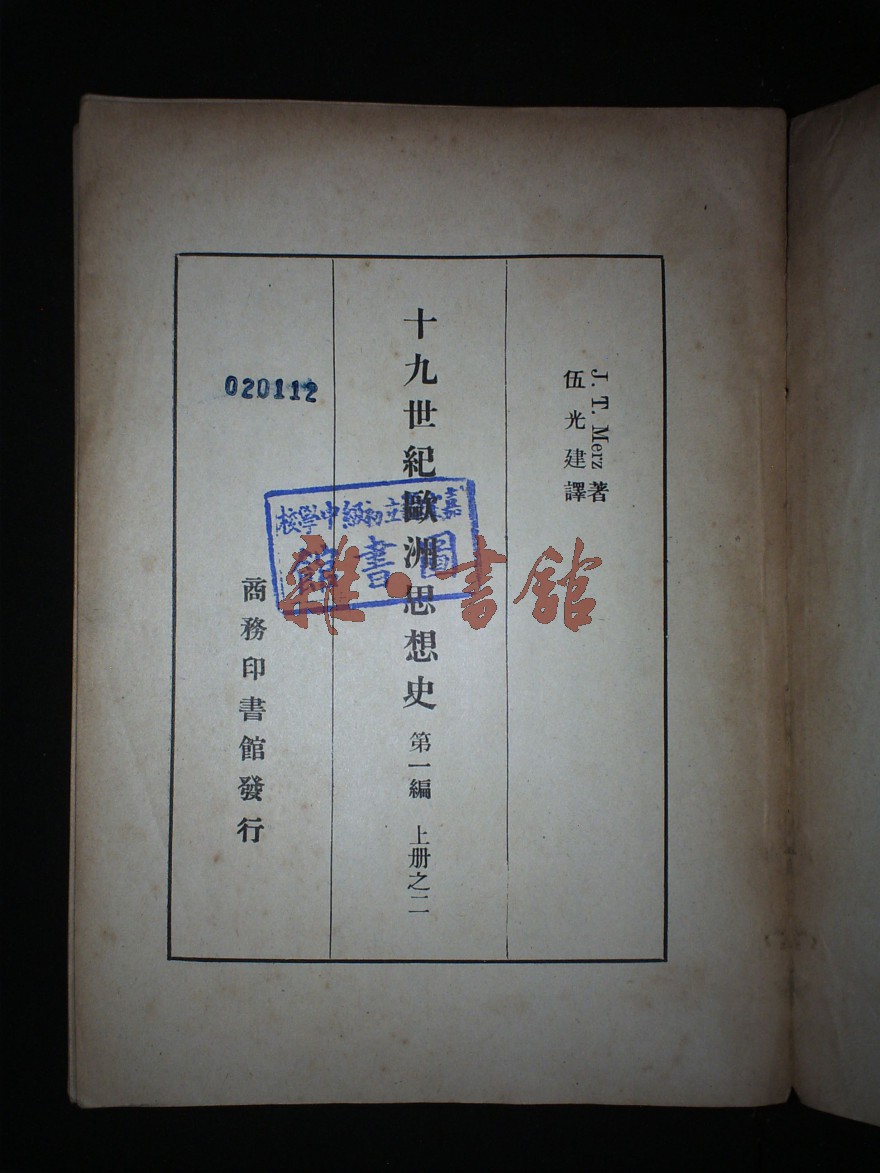 J. T. Merz 著
伍光建譯
十九世紀歐洲思想史 第一編 上册之二
020112
商務印書館發行
立初級中學校
圖書館
雜·書館